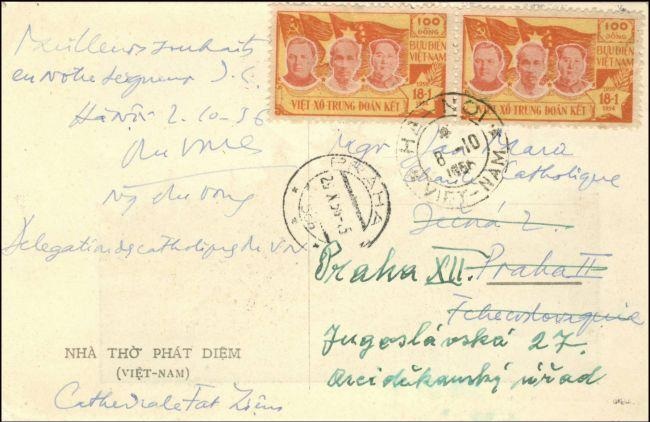 Meilleurs souhaits
en Notre Seigneur J. C.
Hà Nội 2.10-56
Délégation des catholiques du VN
NHÀ THỜ PHÁT DIỆM
(VIỆT-NAM)
Cathédrale Fat Ziem
100
ĐỒNG
BƯU ĐIỆN
VIỆT NAM
1950
18-1
1954
VIỆT XÔ TRUNG ĐOÀN KẾT
100
ĐỒNG
BƯU ĐIỆN
VIỆT NAM
1950
18-1
1954
VIỆT XÔ TRUNG ĐOÀN KẾT
HÀ NỘI
8-10
1956
VIỆT-NAM
PRAHA
Mgr Jan Mara
Catholique
Ječná 2.
Praha XII. Praha II
Tchecoslovaquie
Jugoslávská 27.
Arciděkanský úřad